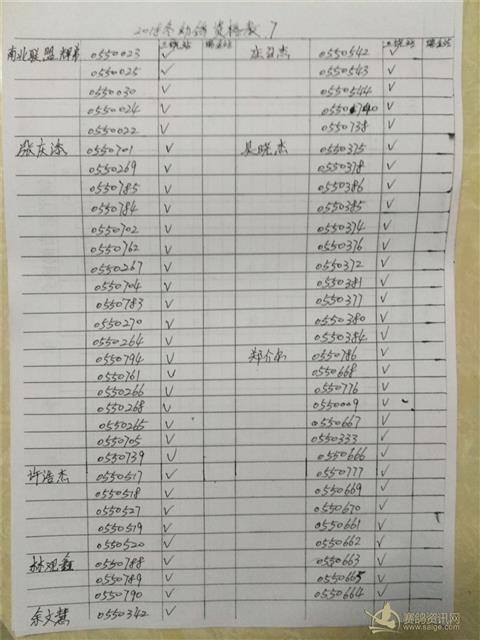 2018冬幼鸽资格赛 7
三晓站 瑞金站 三晓站 瑞金站
南北联盟 0550023 ✓ 庄召杰 0550542 ✓
0550025 ✓ 0550543 ✓
0550030 ✓ 0550544 ✓
0550024 ✓ 0550740 ✓
0550022 ✓ 0550738 ✓
张庆添 0550701 ✓ 吴晓杰 0550375 ✓
0550269 ✓ 0550378 ✓
0550785 ✓ 0550386 ✓
0550784 ✓ 0550385 ✓
0550702 ✓ 0550374 ✓
0550762 ✓ 0550376 ✓
0550267 ✓ 0550372 ✓
0550704 ✓ 0550381 ✓
0550783 ✓ 0550377 ✓
0550270 ✓ 0550380 ✓
0550264 ✓ 0550384 ✓
0550794 ✓ 郑介 0550786 ✓
0550761 ✓ 0550668 ✓
0550266 ✓ 0550776 ✓
0550268 ✓ 0550009 ✓
0550265 ✓ 0550667 ✓
0550705 ✓ 0550333 ✓
0550739 ✓ 0550666 ✓
许浩杰 0550517 ✓ 0550777 ✓
0550518 ✓ 0550669 ✓
0550527 ✓ 0550670 ✓
0550519 ✓ 0550661 ✓
0550520 ✓ 0550662 ✓
林观鑫 0550788 ✓ 0550663 ✓
0550789 ✓ 0550665 ✓
0550790 ✓ 0550664 ✓
余文慧 0550342 ✓
赛鸽资讯网
www.saige.com